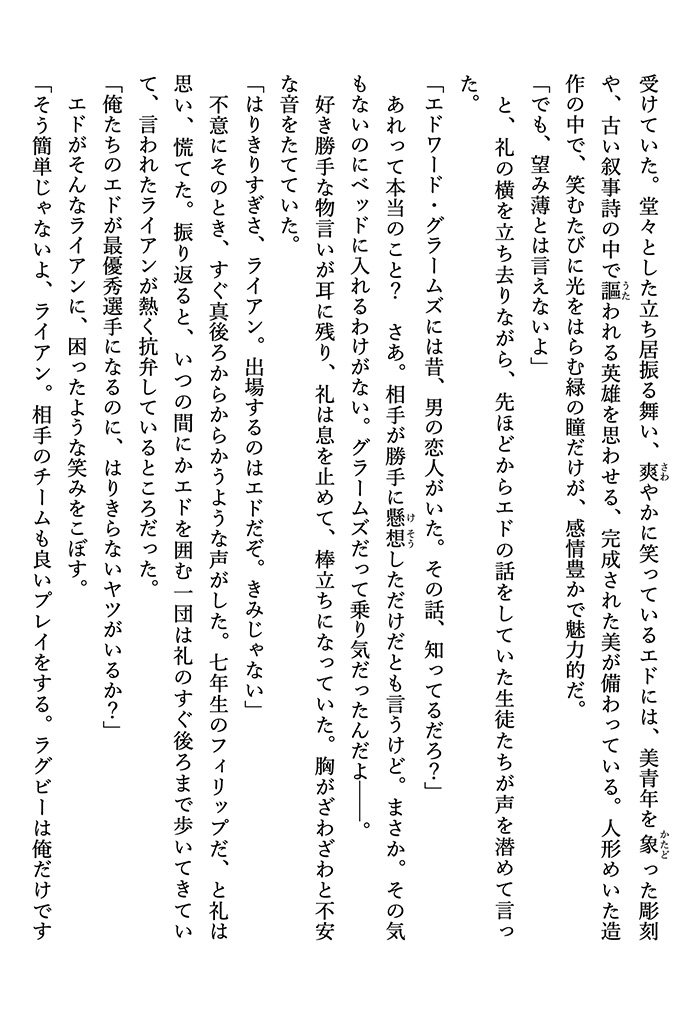 受けていた。堂々とした立ち居振る舞い、爽やかに笑っているエドには、美青年を象った彫刻
や、古い叙事詩の中で謳われる英雄を思わせる、完成された美が備わっている。人形めいた造
作の中で、笑むたびに光をはらむ緑の瞳だけが、感情豊かで魅力的だ。
「でも、望み薄とは言えないよ」
と、礼の横を立ち去りながら、先ほどからエドの話をしていた生徒たちが声を潜めて言っ
た。
「エドワード・グラームズには昔、男の恋人がいた。その話、知ってるだろ？」
あれって本当のこと？　さあ。相手が勝手に懸想しただけだとも言うけど。まさか。その気
もないのにベッドに入れるわけがない。グラームズだって乗り気だったんだよ――。
好き勝手な物言いが耳に残り、礼は息を止めて、棒立ちになっていた。胸がざわざわと不安
な音をたてていた。
「はりきりすぎさ、ライアン。出場するのはエドだぞ。きみじゃない」
不意にそのとき、すぐ真後ろからからかうような声がした。七年生のフィリップだ、と礼は
思い、慌てた。振り返ると、いつの間にかエドを囲む一団は礼のすぐ後ろまで歩いてきてい
て、言われたライアンが熱く抗弁しているところだった。
「俺たちのエドが最優秀選手になるのに、はりきらないヤツがいるか？」
エドがそんなライアンに、困ったような笑みをこぼす。
「そう簡単じゃないよ、ライアン。相手のチームも良いプレイをする。ラグビーは俺だけです